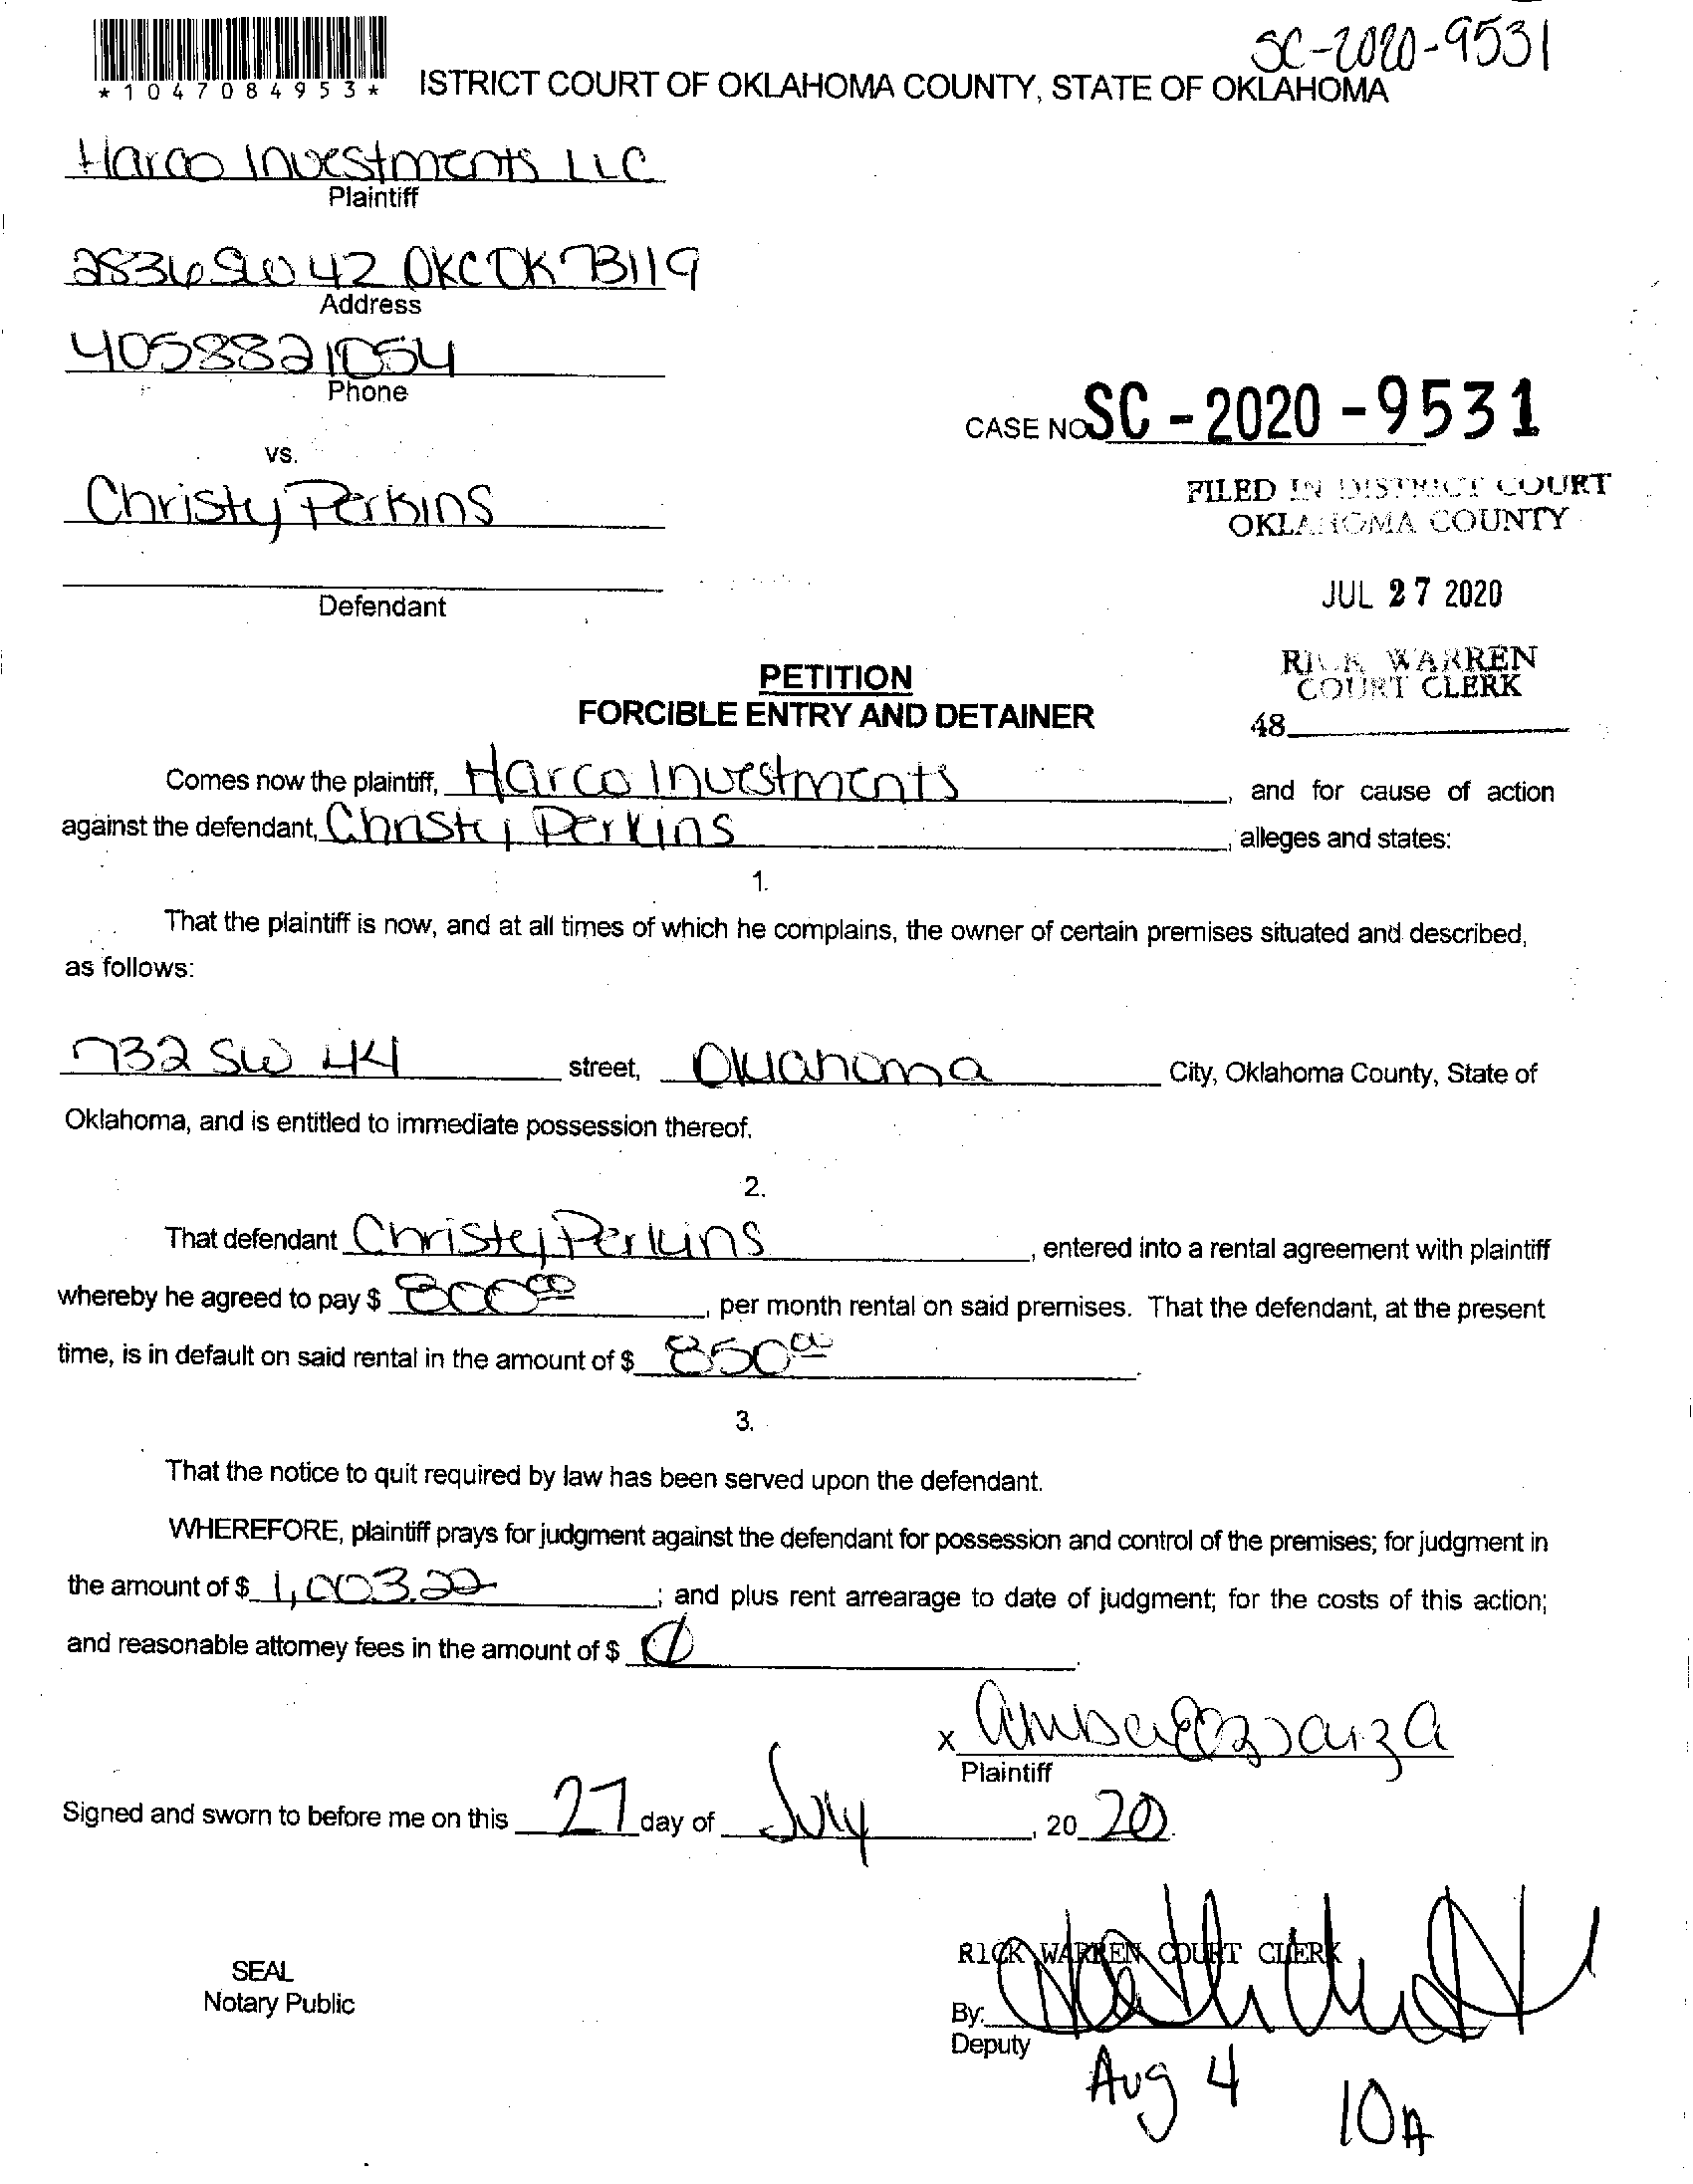 SC-2020-9531
*1047084953*
ISTRICT COURT OF OKLAHOMA COUNTY, STATE OF OKLAHOMA
Harco Investments LLC
Plaintiff
2836 SW 42 OKC OK 73119
Address
4058821054
Phone
CASE NO SC-2020-9531
vs.
Christy Perkins
FILED IN DISTRICT COURT
OKLAHOMA COUNTY
Defendant
JUL 27 2020
RICK WARREN
COURT CLERK
48
PETITION
FORCIBLE ENTRY AND DETAINER
Comes now the plaintiff, Harco Investments, and for cause of action
against the defendant, Christy Perkins, alleges and states:
1.
That the plaintiff is now, and at all times of which he complains, the owner of certain premises situated and described,
as follows:
732 SW 44 street, Oklahoma City, Oklahoma County, State of
Oklahoma, and is entitled to immediate possession thereof.
2.
That defendant Christy Perkins, entered into a rental agreement with plaintiff
whereby he agreed to pay $ 800 00, per month rental on said premises. That the defendant, at the present
time, is in default on said rental in the amount of $ 850 00.
3.
That the notice to quit required by law has been served upon the defendant.
WHEREFORE, plaintiff prays for judgment against the defendant for possession and control of the premises; for judgment in
the amount of $ 1,003.22; and plus rent arrearage to date of judgment; for the costs of this action;
and reasonable attorney fees in the amount of $ Ø.
x
Plaintiff
Signed and sworn to before me on this 27 day of July, 20 20.
RICK WARREN COURT CLERK
SEAL
Notary Public
By:
Deputy
Aug 4
10A